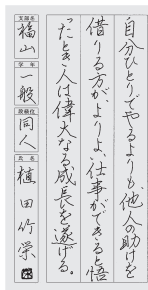 自分ひとりでやるよりも、他人の助けを
借りる方がよりよい仕事ができると悟
ったとき、人は偉大なる成長を遂げる。
支部名
福山
学年
一般
段級位
同人
氏名
植田竹栄